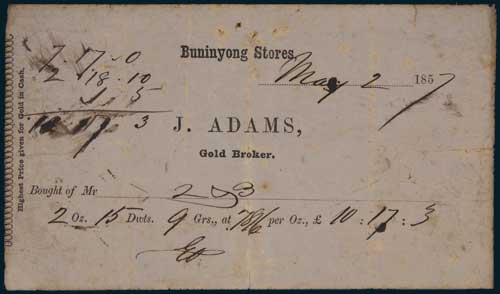 Buninyong Stores,
May 2 1857
7.17.0
2 18.10
1.5
10 17 3
Highest Price given for Gold in Cash.
J. ADAMS,
Gold Broker.
Bought of Mr
2 Oz. 15 Dwts. 9 Grs., at 78/6 per Oz., £ 10 : 17 : 3